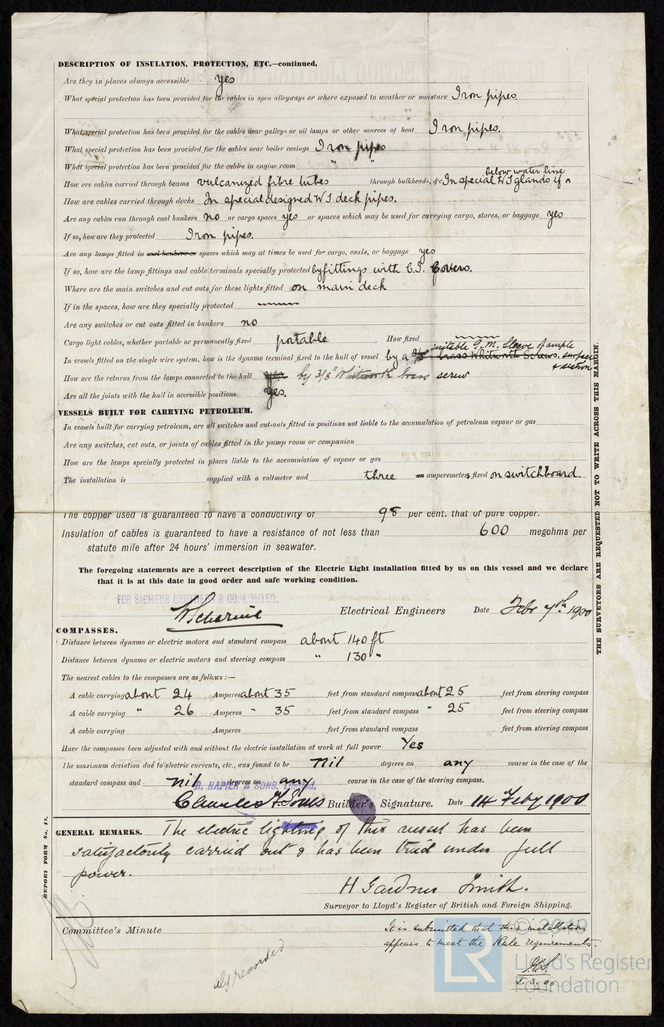 DESCRIPTION OF INSULATION, PROTECTION, ETC.—continued.
Are they in places always accessible yes
What special protection has been provided for the cables in open alleyways or where exposed to weather or moisture Iron pipes
What special protection has been provided for the cables near galleys or oil lamps or other sources of heat Iron pipes.
What special protection has been provided for the cables near boiler casings Iron pipes
What special protection has been provided for the cables in engine room " "
How are cables carried through beams vulcanized fibre tubes through bulkheads, &c. In special W.I. glands if below water line
How are cables carried through decks In special designed W I deck pipes.
Are any cables run through coal bunkers no or cargo spaces yes or spaces which may be used for carrying cargo, stores, or baggage yes
If so, how are they protected Iron pipes.
Are any lamps fitted in coal bunkers or spaces which may at times be used for cargo, coals, or baggage yes
If so, how are the lamp fittings and cable terminals specially protected by fittings with C.I. Covers.
Where are the main switches and cut outs for these lights fitted on main deck
If in the spaces, how are they specially protected
Are any switches or cut outs fitted in bunkers no
Cargo light cables, whether portable or permanently fixed portable How fixed
In vessels fitted on the single wire system, how is the dynamo terminal fixed to the hull of vessel by a 3/8" brass Whitworth Screws. suitable G.M. Sleeve of ample surface & section
How are the returns from the lamps connected to the hull yes by 3/8" Whitworth brass screw
Are all the joints with the hull in accessible positions Yes.
VESSELS BUILT FOR CARRYING PETROLEUM.
In vessels built for carrying petroleum, are all switches and cut-outs fitted in positions not liable to the accumulation of petroleum vapour or gas
Are any switches, cut outs, or joints of cables fitted in the pump room or companion
How are the lamps specially protected in places liable to the accumulation of vapour or gas
The installation is supplied with a voltmeter and three an amperemeters fixed on switchboard.
The copper used is guaranteed to have a conductivity of 98 per cent. that of pure copper.
Insulation of cables is guaranteed to have a resistance of not less than 600 megohms per
statute mile after 24 hours' immersion in seawater.
The foregoing statements are a correct description of the Electric Light installation fitted by us on this vessel and we declare
that it is at this date in good order and safe working condition.
FOR SIEMENS BROTHERS & CO. LIMITED.
Electrical Engineers Date Febr 7th 1900
COMPASSES.
Distance between dynamo or electric motors and standard compass about 140 ft
Distance between dynamo or electric motors and steering compass " 130 "
The nearest cables to the compasses are as follows:—
A cable carrying about 24 Amperes about 35 feet from standard compass about 25 feet from steering compass
A cable carrying " 26 Amperes " 35 feet from standard compass " 25 feet from steering compass
A cable carrying Amperes feet from standard compass feet from steering compass
Have the compasses been adjusted with and without the electric installation at work at full power Yes
The maximum deviation due to electric currents, etc., was found to be Nil degrees on any course in the case of the
standard compass and nil degrees on any course in the case of the steering compass.
R. NAPIER & SONS, LIMITED.
Builder's Signature. Date 14 Feby 1900
GENERAL REMARKS. The electric lighting of this vessel has been
satisfactorily carried out & has been tried under full
power.
H Gardner Smith.
Surveyor to Lloyd's Register of British and Foreign Shipping.
Committee's Minute
It is submitted that this installation
appears to meet the Rule requirements.
5.3.00
THE SURVEYORS ARE REQUESTED NOT TO WRITE ACROSS THIS MARGIN.
REPORT FORM No. 14.
LR
Lloyd's Register
Foundation